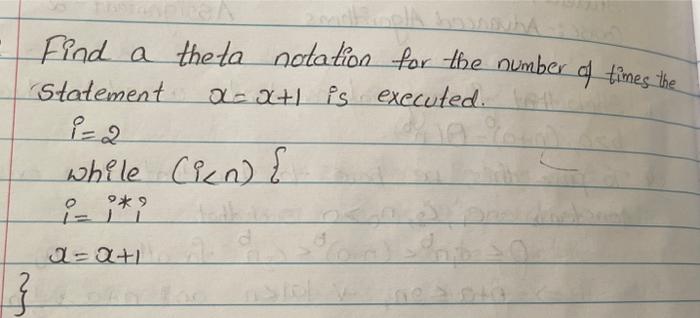 Find a theta notation for the number of times the
statement x = x+1 is executed.
i=2
while (i<n) {
i= i*i
x = x+1
}